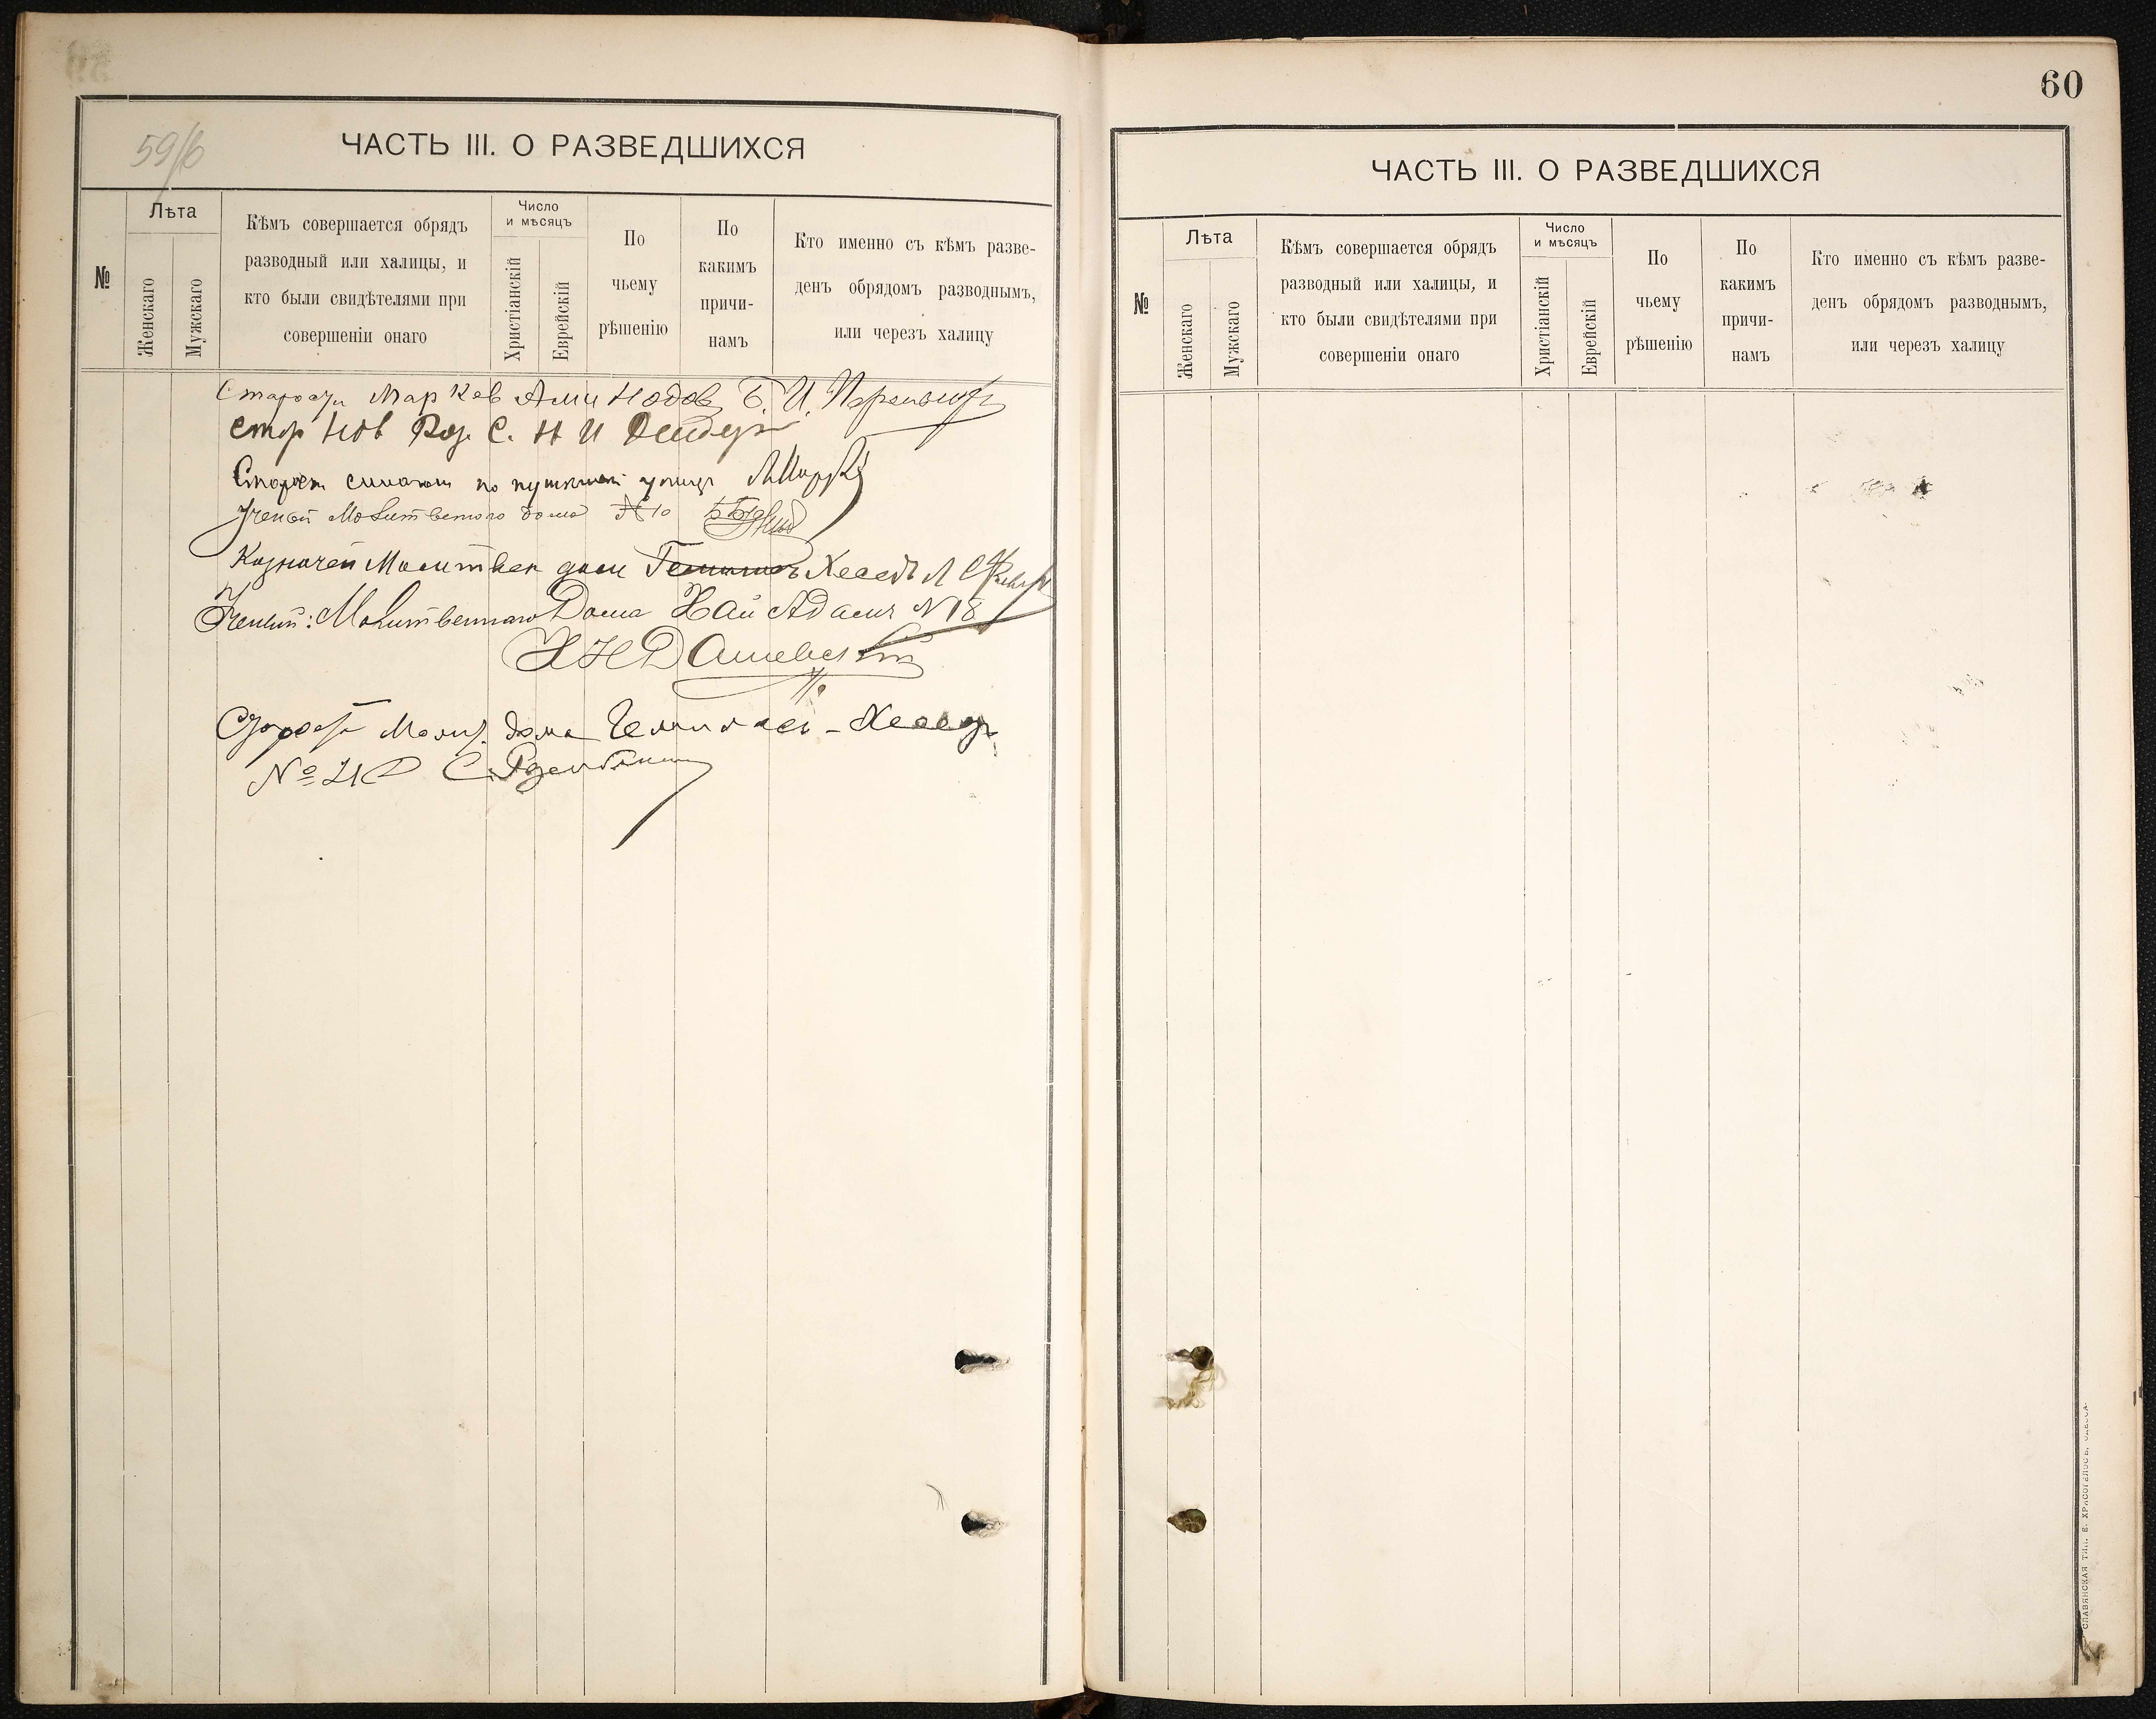 59/б
ЧАСТЬ III. О РАЗВЕДШИХСЯ
№
Лѣта
Женскаго
Мужскаго
Кѣмъ совершается обрядъ
разводный или халицы, и
кто были свидѣтелями при
совершеніи онаго
Число
и мѣсяцъ
Христіанскій
Еврейскій
По
чьему
рѣшенію
По
какимъ
причи-
намъ
Кто именно съ кѣмъ разве-
денъ обрядомъ разводнымъ,
или черезъ халицу
Б. И.
С. Н И
по улицѣ
Ученый Молитвеного дома № 10
Казначей Молитвен дома Хеседъ Л С
Ученый: Молитвеннаго Дома Хаи Адамъ № 18
Х Н Дашевскій
Староста Молит. дома Гемиласъ - Хеседъ
№ С.
60
ЧАСТЬ III. О РАЗВЕДШИХСЯ
№
Лѣта
Женскаго
Мужскаго
Кѣмъ совершается обрядъ
разводный или халицы, и
кто были свидѣтелями при
совершеніи онаго
Число
и мѣсяцъ
Христіанскій
Еврейскій
По
чьему
рѣшенію
По
какимъ
причи-
намъ
Кто именно съ кѣмъ разве-
денъ обрядомъ разводнымъ,
или черезъ халицу
СЛАВЯНСКАЯ ТИП. Е. ХРИСОГЕЛОСЪ, ОДЕССА.